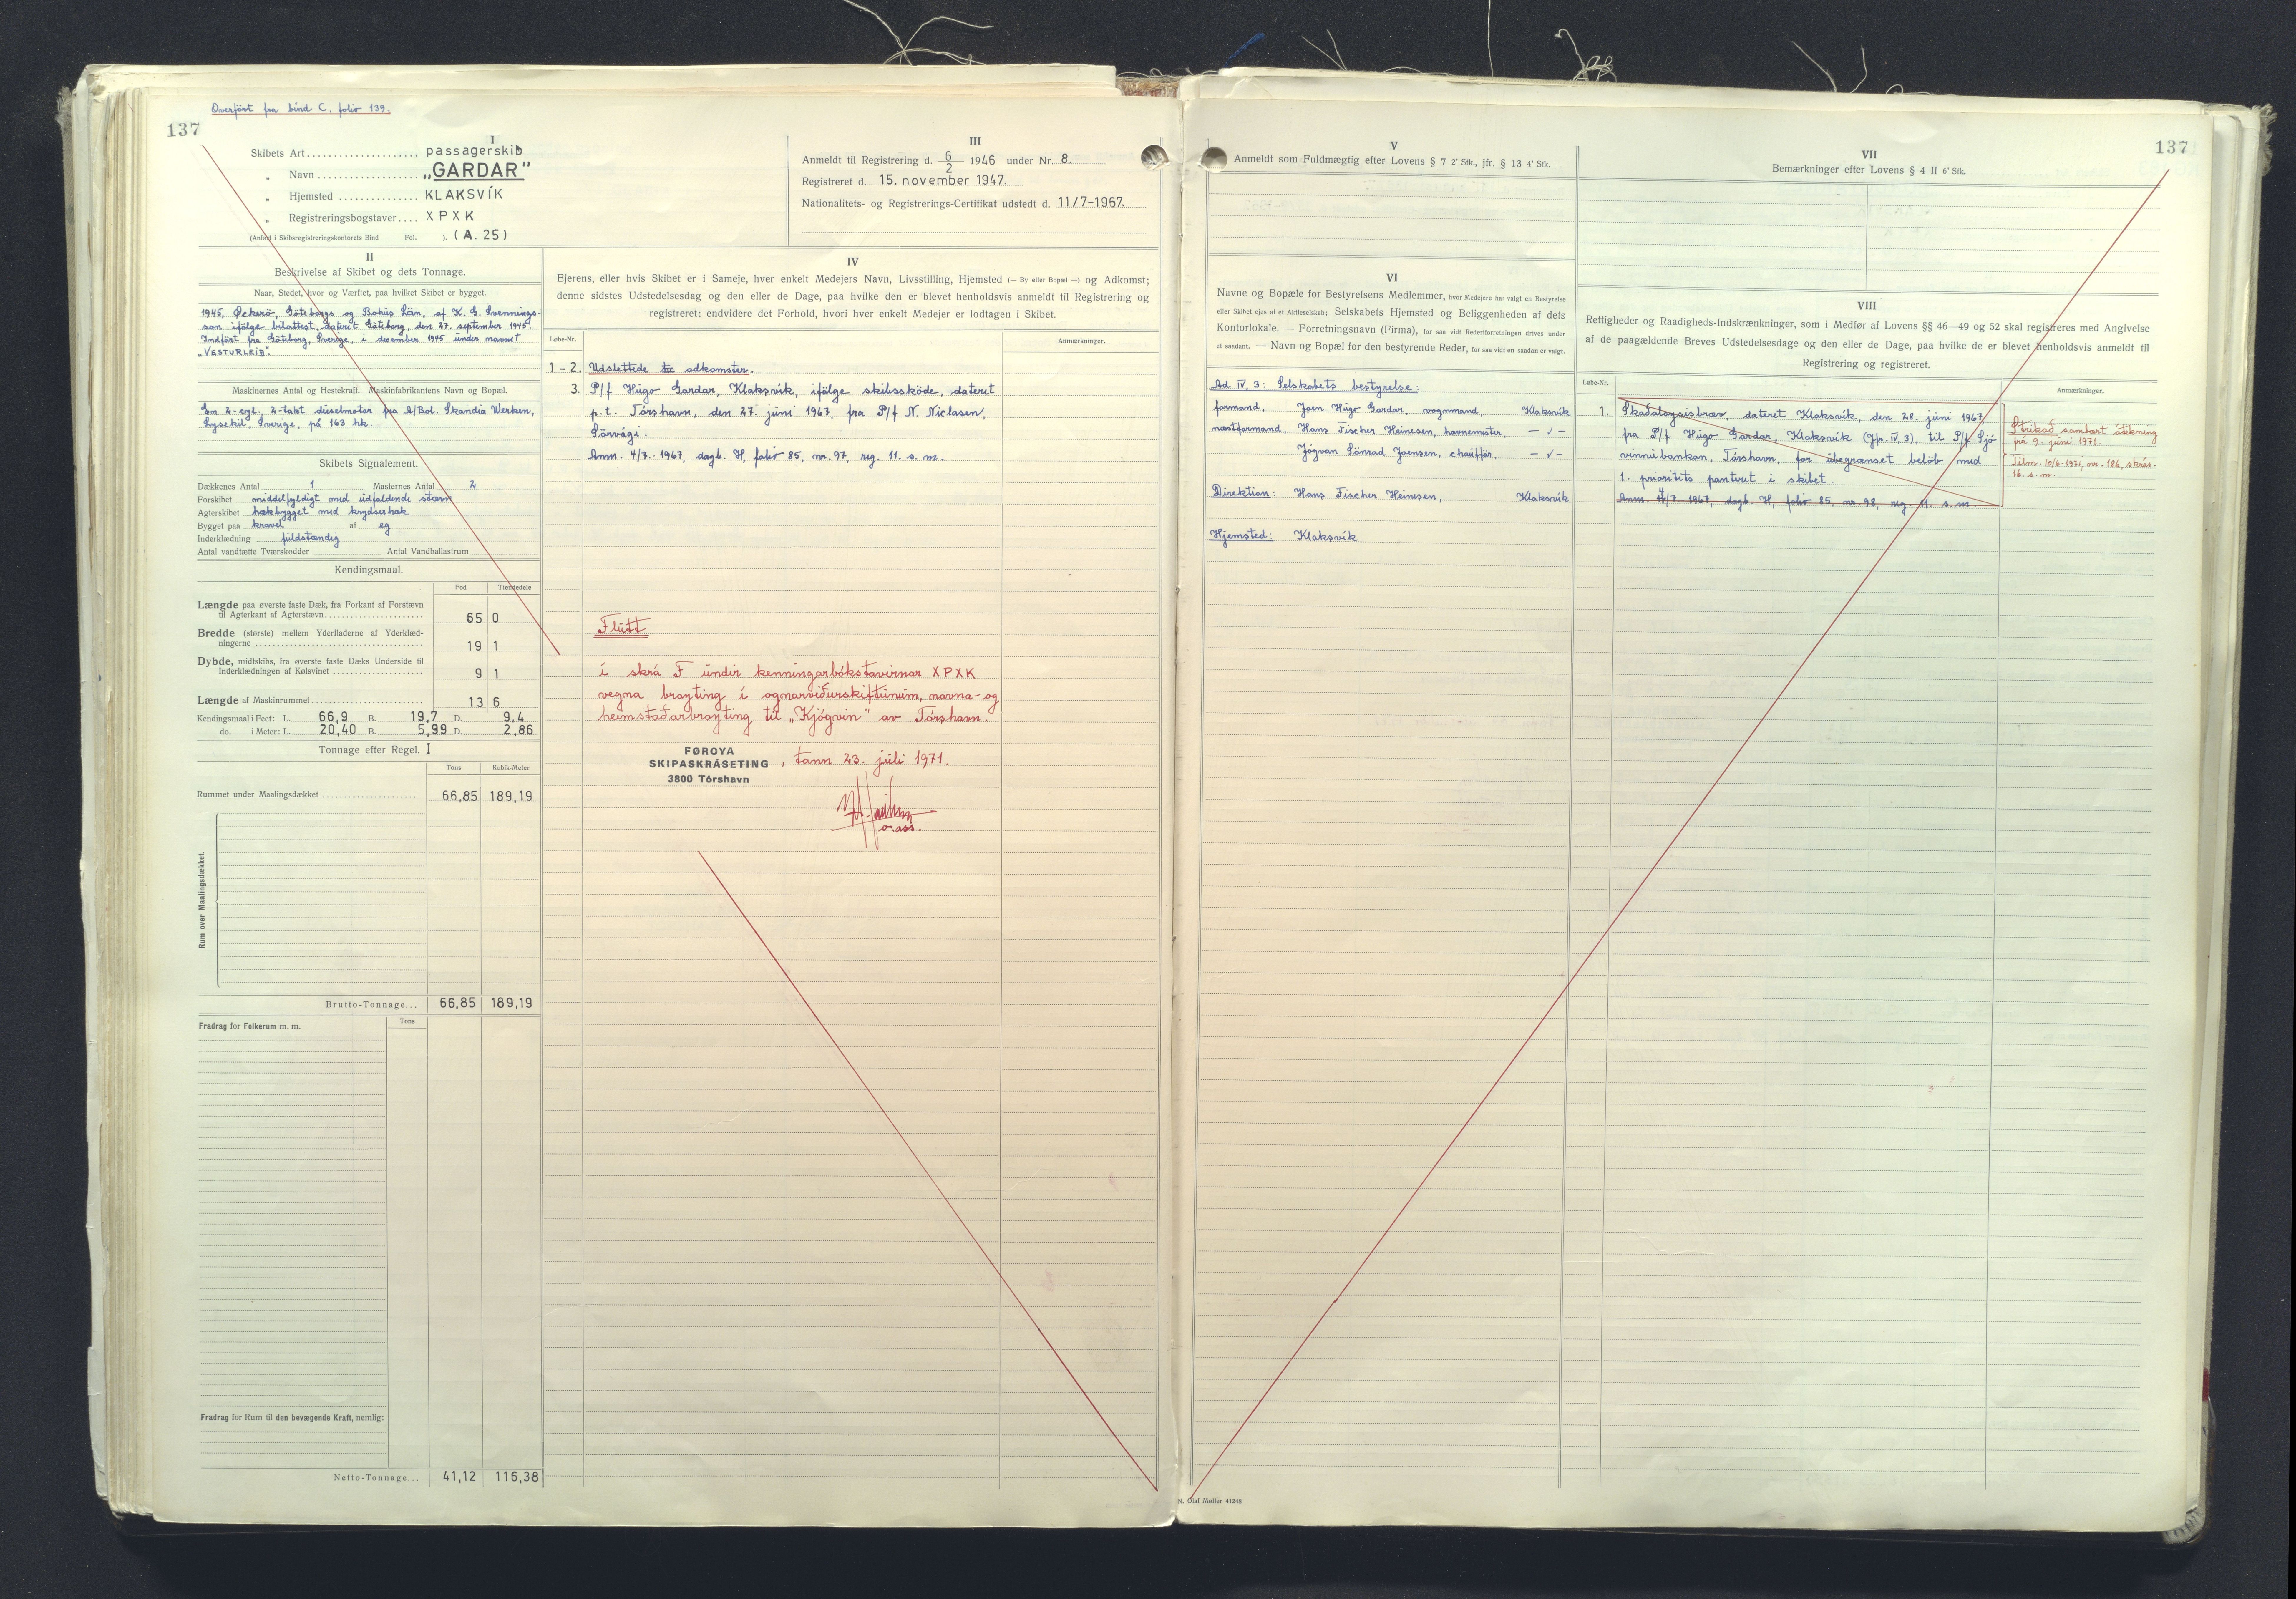 Overført fra bind C. folio 139.
137
I
Skibets Art passagerskib
„ Navn „GARDAR"
„ Hjemsted KLAKSVÍK
„ Registreringsbogstaver XPXK
(Anført i Skibsregistreringskontorets Bind Fol. ). (A. 25)
III
Anmeldt til Registrering d. 6/2 1946 under Nr. 8.
Registreret d. 15. november 1947.
Nationalitets- og Registrerings-Certifikat udstedt d. 11/7-1967.
II
Beskrivelse af Skibet og dets Tonnage.
Naar, Stedet, hvor og Værftet, paa hvilket Skibet er bygget.
1945, Öckerö, Göteborgs og Bohus Län, af K. G. Svennings-
son ifölge bilattest, dateret Göteborg, den 27. september 1945.
Indført fra Göteborg, Sverige, i december 1945 under navnet
„VESTURLEIÐ".
Maskinernes Antal og Hestekraft. Maskinfabrikantens Navn og Bopæl.
Em 2-cyl. 2-takt dieselmotor fra A/Bol. Skandia Werken,
Lysekil, Sverige, på 163 hk.
Skibets Signalement.
Dækkenes Antal 1 Masternes Antal 2
Forskibet middelfyldigt med udfaldende stævn
Agterskibet hækbygget med krydserhæk
Bygget paa kravel af eg
Inderklædning fuldstændig
Antal vandtætte Tværskodder Antal Vandballastrum
Kendingsmaal.
Fod Tiendedele
Længde paa øverste faste Dæk, fra Forkant af Forstævn
til Agterkant af Agterstævn 65 0
Bredde (største) mellem Yderfladerne af Yderklæd-
ningerne 19 1
Dybde, midtskibs, fra øverste faste Dæks Underside til
Inderklædningen af Kølsvinet 9 1
Længde af Maskinrummet 13 6
Kendingsmaal i Feet: L. 66,9 B. 19,7 D. 9,4
do. i Meter: L. 20,40 B. 5,99 D. 2,86
Tonnage efter Regel. I
Tons Kubik-Meter
Rummet under Maalingsdækket 66,85 189,19
Rum over Maalingsdækket.
Brutto-Tonnage... 66,85 189,19
Fradrag for Folkerum m. m. Tons
Fradrag for Rum til den bevægende Kraft, nemlig:
Netto-Tonnage... 41,12 116,38
IV
Ejerens, eller hvis Skibet er i Sameje, hver enkelt Medejers Navn, Livsstilling, Hjemsted (— By eller Bopæl —) og Adkomst;
denne sidstes Udstedelsesdag og den eller de Dage, paa hvilke den er blevet henholdsvis anmeldt til Registrering og
registreret; endvidere det Forhold, hvori hver enkelt Medejer er lodtagen i Skibet.
Løbe-Nr. Anmærkninger.
1-2. Udslettede adkomster.
3. P/f Húgo Gardar, Klaksvík, ifölge skibssköde, dateret
p.t. Tórshavn, den 27. júni 1967, fra P/f N. Niclasen,
Sörvági.
Anm. 4/7-1967, dagb. H, folio 85, nr. 97, reg. 11. s. m.
Flutt
í skrá F undir kenningarbókstavirnar XPXK
vegna broyting í ognarviðurskiftunum, navna-og
heimstaðarbroyting til „Kjógvin" av Tórshavn.
FØROYA
SKIPASKRÁSETING
3800 Tórshavn
, tann 23. júli 1971.
o. ass.
V
Anmeldt som Fuldmægtig efter Lovens § 7 2' Stk., jfr. § 13 4' Stk.
VI
Navne og Bopæle for Bestyrelsens Medlemmer, hvor Medejere har valgt en Bestyrelse
eller Skibet ejes af et Aktieselskab; Selskabets Hjemsted og Beliggenheden af dets
Kontorlokale. — Forretningsnavn (Firma), for saa vidt Rederiforretningen drives under
et saadant. — Navn og Bopæl for den bestyrende Reder, for saa vidt en saadan er valgt.
Ad IV, 3: Selskabets bestyrelse:
formand, Joen Húgo Gardar, vognmand, Klaksvík
næstformand, Hans Fischer Heinesen, havnemester, — „ —
Jógvan Sónrad Joensen, chauffør, — „ —
Direktion: Hans Fischer Heinesen, Klaksvík
Hjemsted: Klaksvík
137
VII
Bemærkninger efter Lovens § 4 II 6' Stk.
VIII
Rettigheder og Raadigheds-Indskrænkninger, som i Medfør af Lovens §§ 46—49 og 52 skal registreres med Angivelse
af de paagældende Breves Udstedelsesdage og den eller de Dage, paa hvilke de er blevet henholdsvis anmeldt til
Registrering og registreret.
Løbe-Nr. Anmærkninger.
1. Skaðaloysisbræv, dateret Klaksvík, den 28. júni 1967,
fra P/f Húgo Gardar, Klaksvík (Jfr. IV, 3), til P/f Sjó-
vinnubankan, Tórshavn, for ubegrænset beløb med
1. prioritets panteret i skibet.
Anm. 4/7-1967, dagb. H, folio 85, nr. 98, reg. 11. s. m.
Strikað sambært áteikning
frá 9. júni 1971.
Tilm. 10/6-1971, nr. 186, skrás.
16. s. m.
N. Olaf Møller 41248